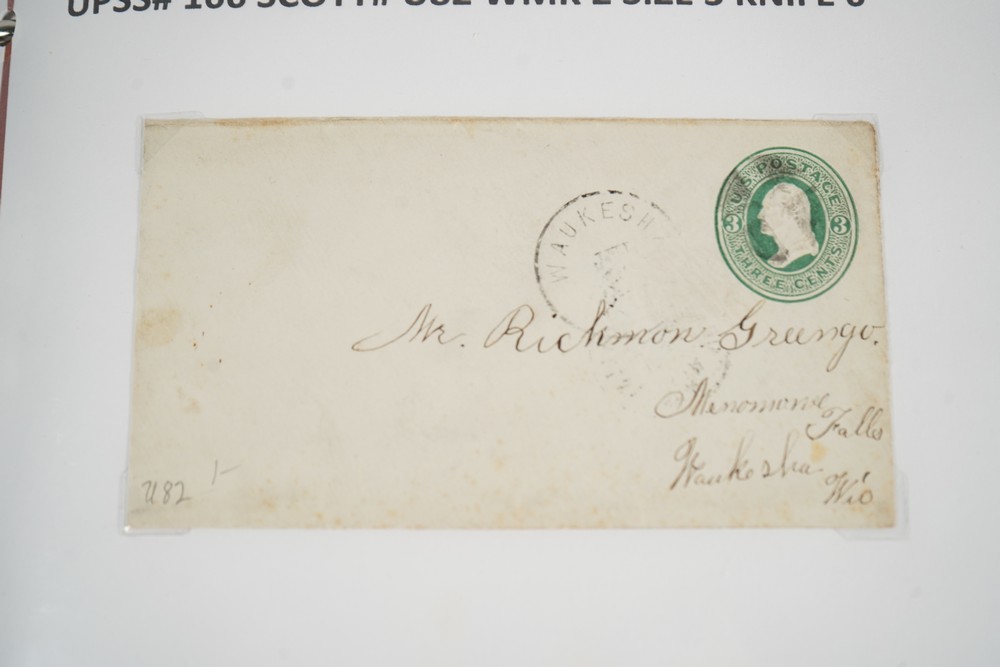 UPSS# 166 SCOTT# U82 WMK 2 SIZE 3 KNIFE 6
U.S. POSTAGE
3 3
THREE CENTS
WAUKESHA
Mr. Richmon Greengo.
Menomonee
Falls
Waukesha
Wis
U82 1-